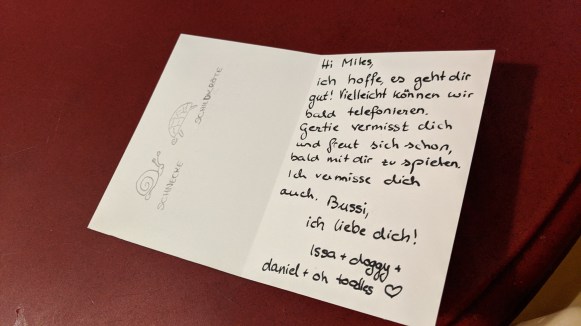 SCHNECKE
SCHILDKRÖTE
Hi Miles,
ich hoffe, es geht dir
gut! Vielleicht können wir
bald telefonieren.
Gertie vermisst dich
und freut sich schon,
bald mit dir zu spielen.
Ich vermisse dich
auch. Bussi,
ich liebe dich!
Issa + doggy +
daniel + oh toodles ♡